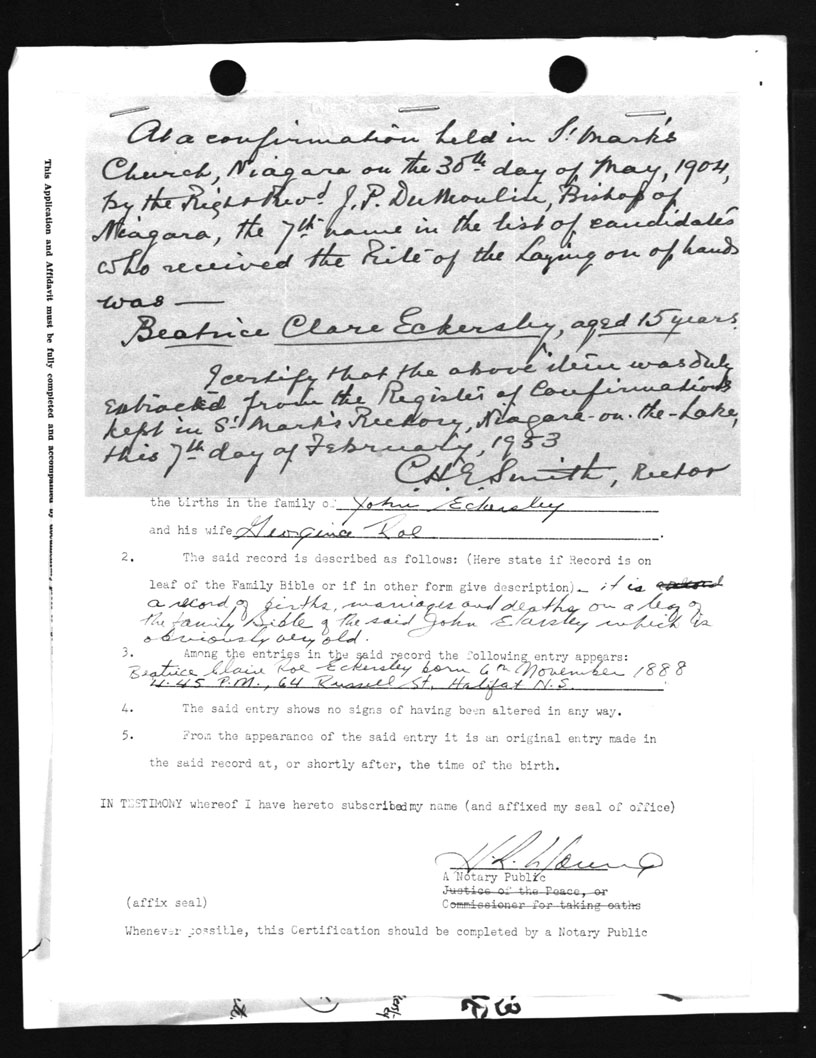 At a confirmation held in St. Mark's
Church, Niagara on the 30th day of May, 1904,
by the Right Revd J. P. DuMoulin, Bishop of
Niagara, the 7th name in the list of candidates
who received the Rite of the Laying on of hands
was —
Beatrice Clare Eckersley, aged 15 years.
I certify that the above item was duly
extracted from the Register of Confirmations
kept in St. Mark's Rectory, Niagara-on-the-Lake,
this 7th day of February, 1953
C.H.E. Smith, Rector
This Application and Affidavit must be fully completed and accompanied by
the births in the family of John Eckersley
and his wife Georgina Roe.
2. The said record is described as follows: (Here state if Record is on
leaf of the Family Bible or if in other form give description). it is
a record of births, marriages and deaths on a leaf of
the family bible of the said John which is
obviously very old.
3. Among the entries in the said record the following entry appears:
Beatrice Claire Roe Eckersley born 6th November 1888
4.45 P.M., 64 Russell St., Halifax N.S.
4. The said entry shows no signs of having been altered in any way.
5. From the appearance of the said entry it is an original entry made in
the said record at, or shortly after, the time of the birth.
IN TESTIMONY whereof I have hereto subscribed my name (and affixed my seal of office)
A Notary Public
Justice of the Peace, or
(affix seal) Commissioner for taking oaths
Whenever possible, this Certification should be completed by a Notary Public